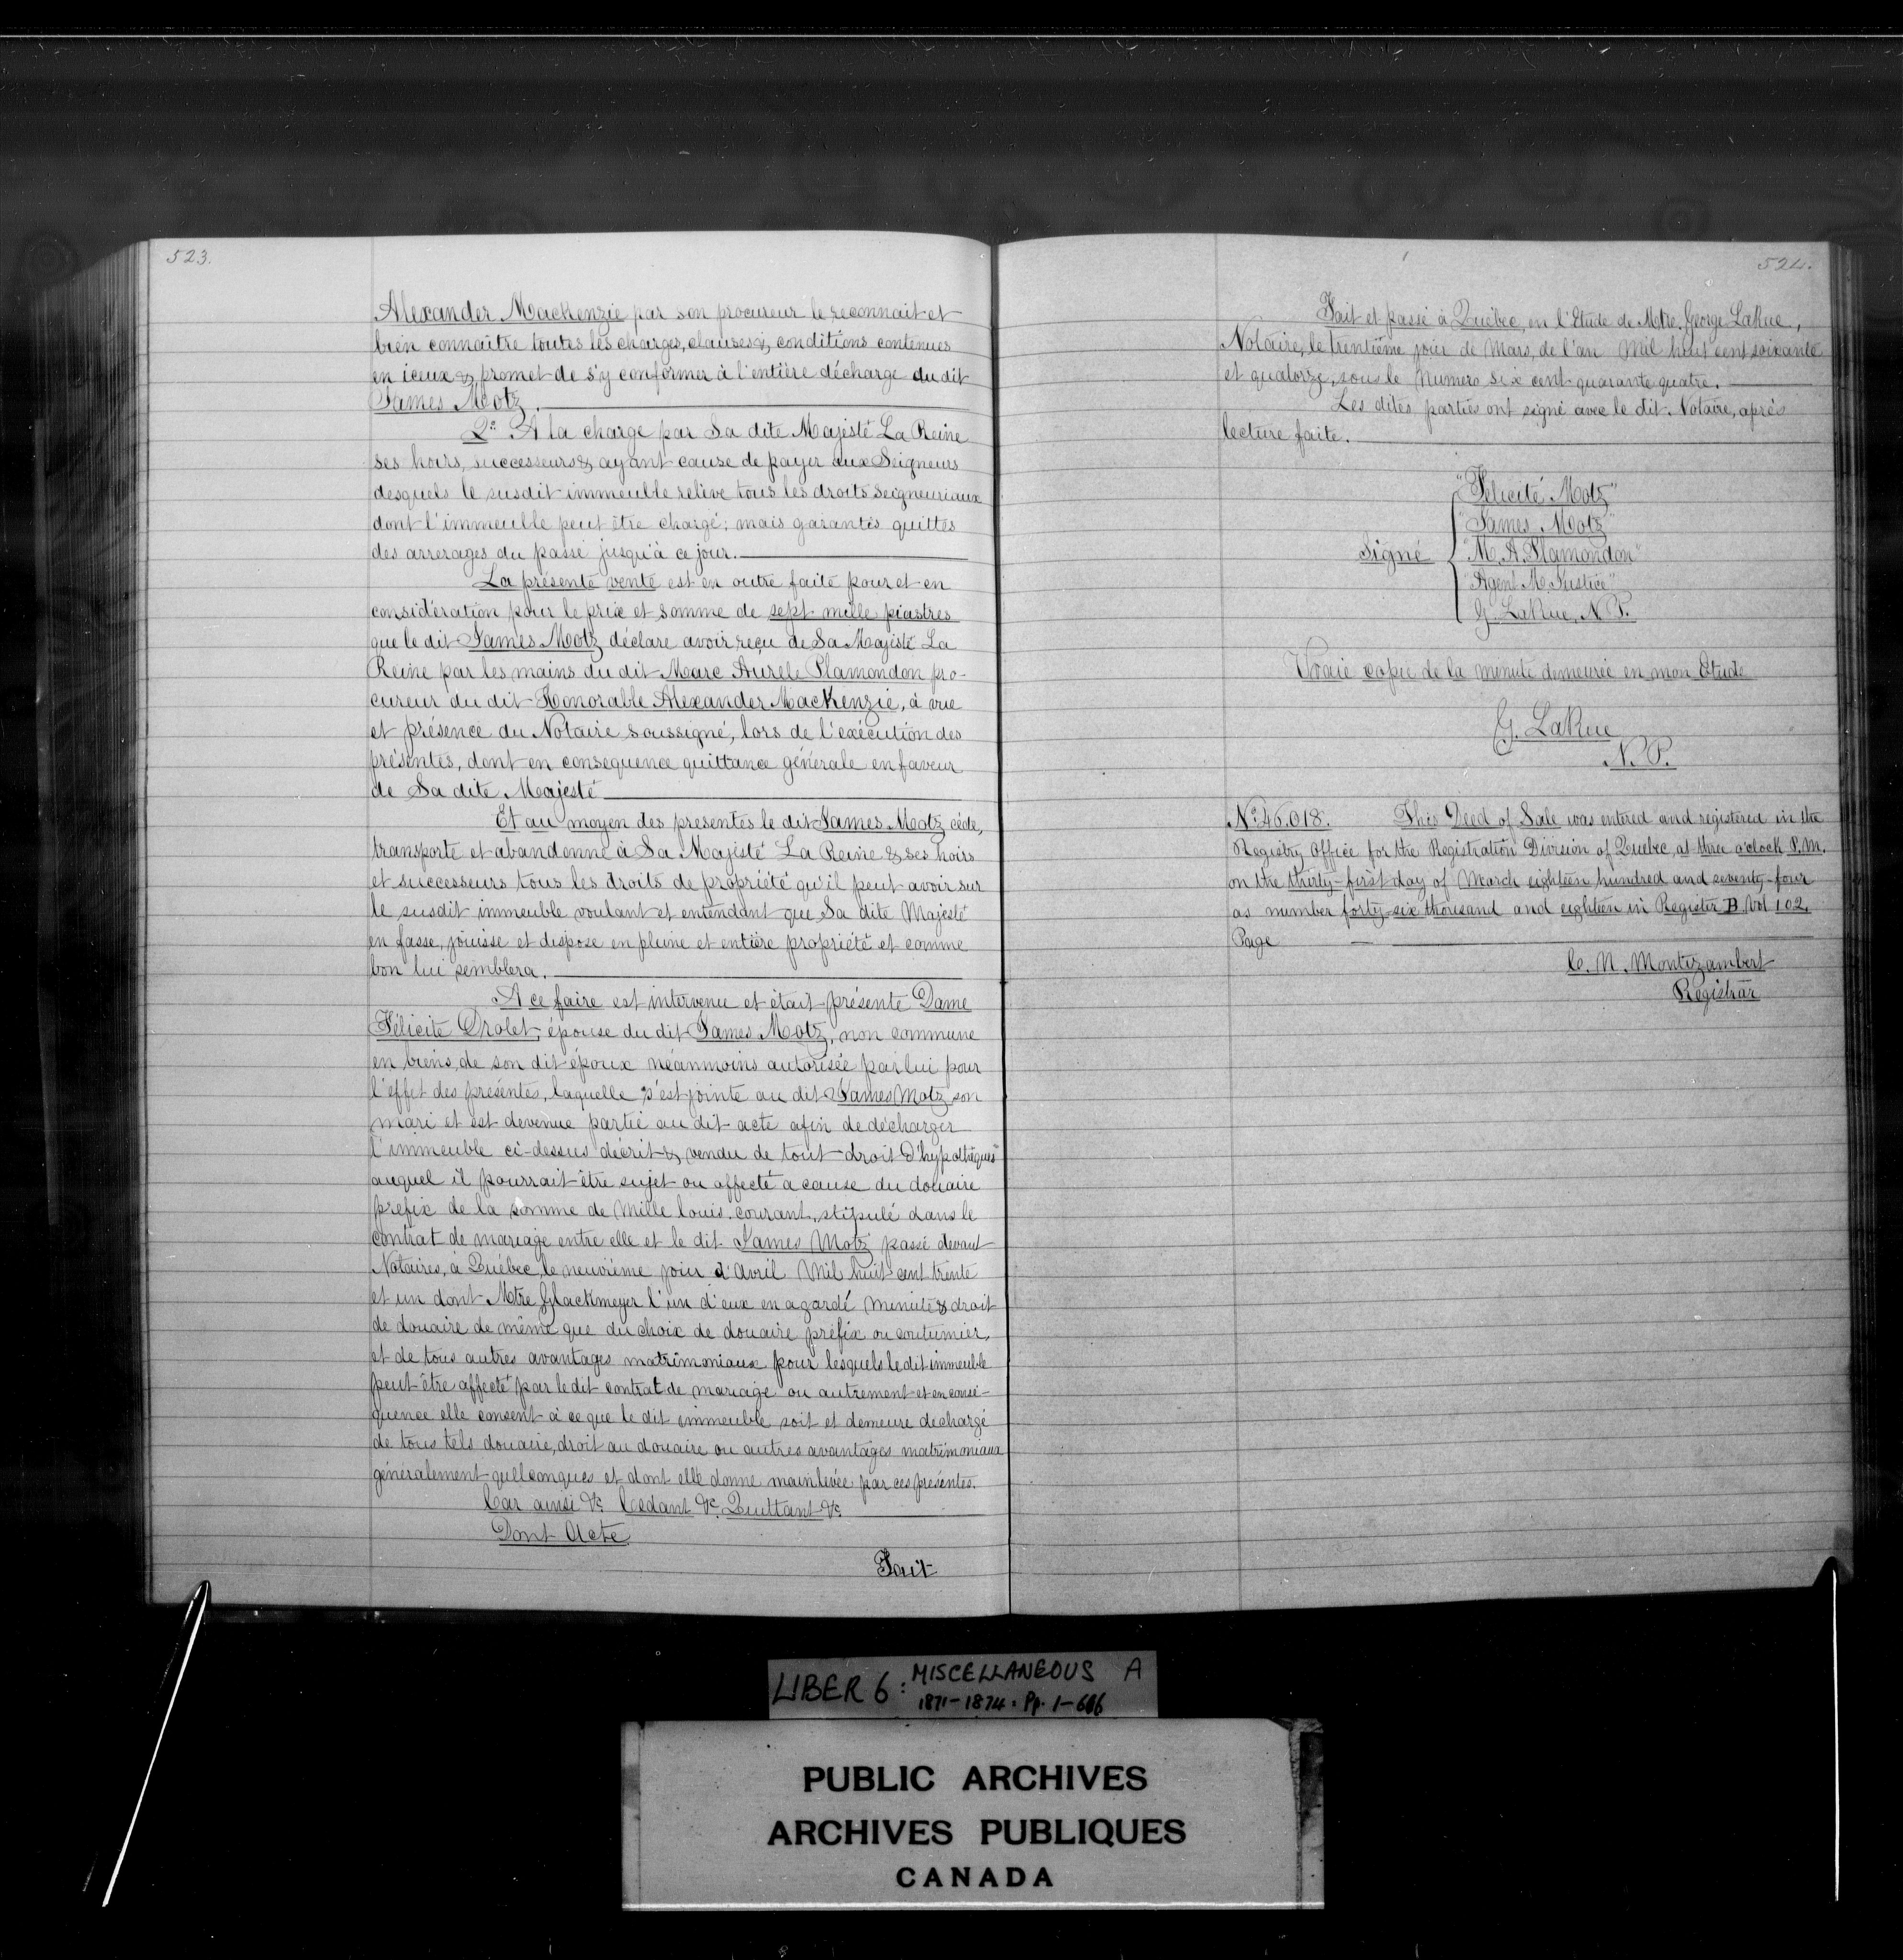 523.
Alexander MacKenzie par son procureur le reconnait et
bien connaitre toutes les charges, clauses &, conditions contenues
en iceux & promet de s'y conformer à l'entière décharge du dit
James Motz.
2º A la charge par Sa dite Majesté La Reine
ses hoirs, successeurs & ayant cause de payer aux Seigneurs
desquels le susdit immeuble relive tous les droits seigneuriaux
dont l'immeuble peut être chargé; mais garantis quittes
des arrerages du passé jusqu'à ce jour.
La présente vente est en outre faite pour et en
considération pour le prix et somme de sept mille piastres
que le dit James Motz déclare avoir reçu de Sa Majesté La
Reine par les mains du dit Marc Aurele Plamondon pro-
cureur du dit Honorable Alexander MacKenzie, à vue
et présence du Notaire soussigné, lors de l'exécution des
présentes, dont en consequence quittance générale en faveur
de Sa dite Majesté
Et au moyen des presentes le dit James Motz cède,
transporte et abandonne à Sa Majesté La Reine & ses hoirs
et successeurs tous les droits de propriété qu'il peut avoir sur
le susdit immeuble voulant et entendant que Sa dite Majesté
en fasse, jouisse et dispose en pleine et entière propriété et comme
bon lui semblera.
A ce faire est intervenue et était présente Dame
Félicité Drolet, épouse du dit James Motz, non commune
en biens, de son dit époux néanmoins autorisée par lui pour
l'effet des présentes, laquelle s'est jointe au dit James Motz son
mari et est devenue partie au dit acte afin de décharger
l'immeuble ci-dessus décrit & vendu de tout droit d'hypothèques
auquel il pourrait être sujet ou affecté a cause du douaire
prefix de la somme de Mille louis courant, stipulé dans le
contrat de mariage entre elle et le dit James Motz passé devant
Notaires, à Québec, le neuvième jour d'Avril Mil huit cent trente
et un dont Mtre Glackmeyer l'un d'eux en a gardé minute & droit
de douaire de même que du choix de douaire préfix ou coutumier,
et de tous autres avantages matrimoniaux pour lesquels le dit immeuble
peut être affecté par le dit contrat de mariage ou autrement et en consé-
quence elle consent à ce que le dit immeuble soit et demeure déchargé
de tous tels douaire, droit au douaire ou autres avantages matrimoniaux
généralement quelconques et dont elle donne mainlevée par ces présentes.
Car ainsi &c. Cedant &c. Quittant &c.
Dont Acte
Fait
524.
Fait et passé à Québec, en l'Etude de Mtre. George LaRue,
Notaire, le trentième jour de Mars, de l'an Mil huit cent soixante
et quatorze, sous le Numero six cent quarante quatre.
Les dites parties ont signé avec le dit Notaire, après
lecture faite.
"Félicité Motz"
"James Motz"
Signé "M. A. Plamondon"
"Agent M. Justice"
G. LaRue, N. P.
Vraie copie de la minute demeurée en mon Etude
G. LaRue
N. P.
No 46.018. This Deed of Sale was entered and registered in the
Registry Office for the Registration Division of Quebec, at three o'clock P.M.
on the thirty-first day of March eighteen hundred and seventy-four
as number forty-six thousand and eighteen in Register B. Vol 102.
Page
C. N. Montizambert
Registrar
LIBER 6: MISCELLANEOUS A
1871-1874: Pp. 1-606
PUBLIC ARCHIVES
ARCHIVES PUBLIQUES
CANADA